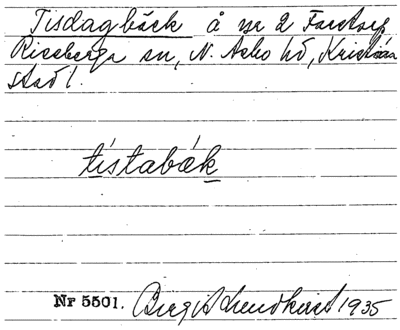 Tisdagbäck å nr 2 Forstorp
Riseberga sn, N. Åsbo hd, Kristian
stad l.
tístabǽk
Nr 5501. Birgit Lundkvist 1935